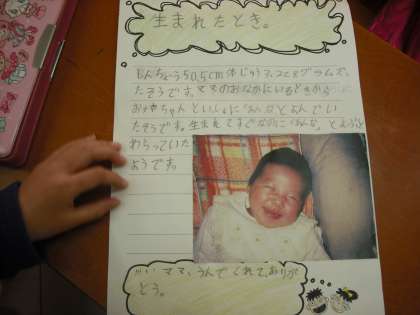 生まれたとき。
しんちょう50.5cm体じゅう
グラムで、
たそうです。ママのおなかにいるときから
おねえちゃんといっしょに とよんでい
たそうです。生まれてすぐなのに
わらっていた
ようです。
ママ、うんでくれて、ありが
とう。